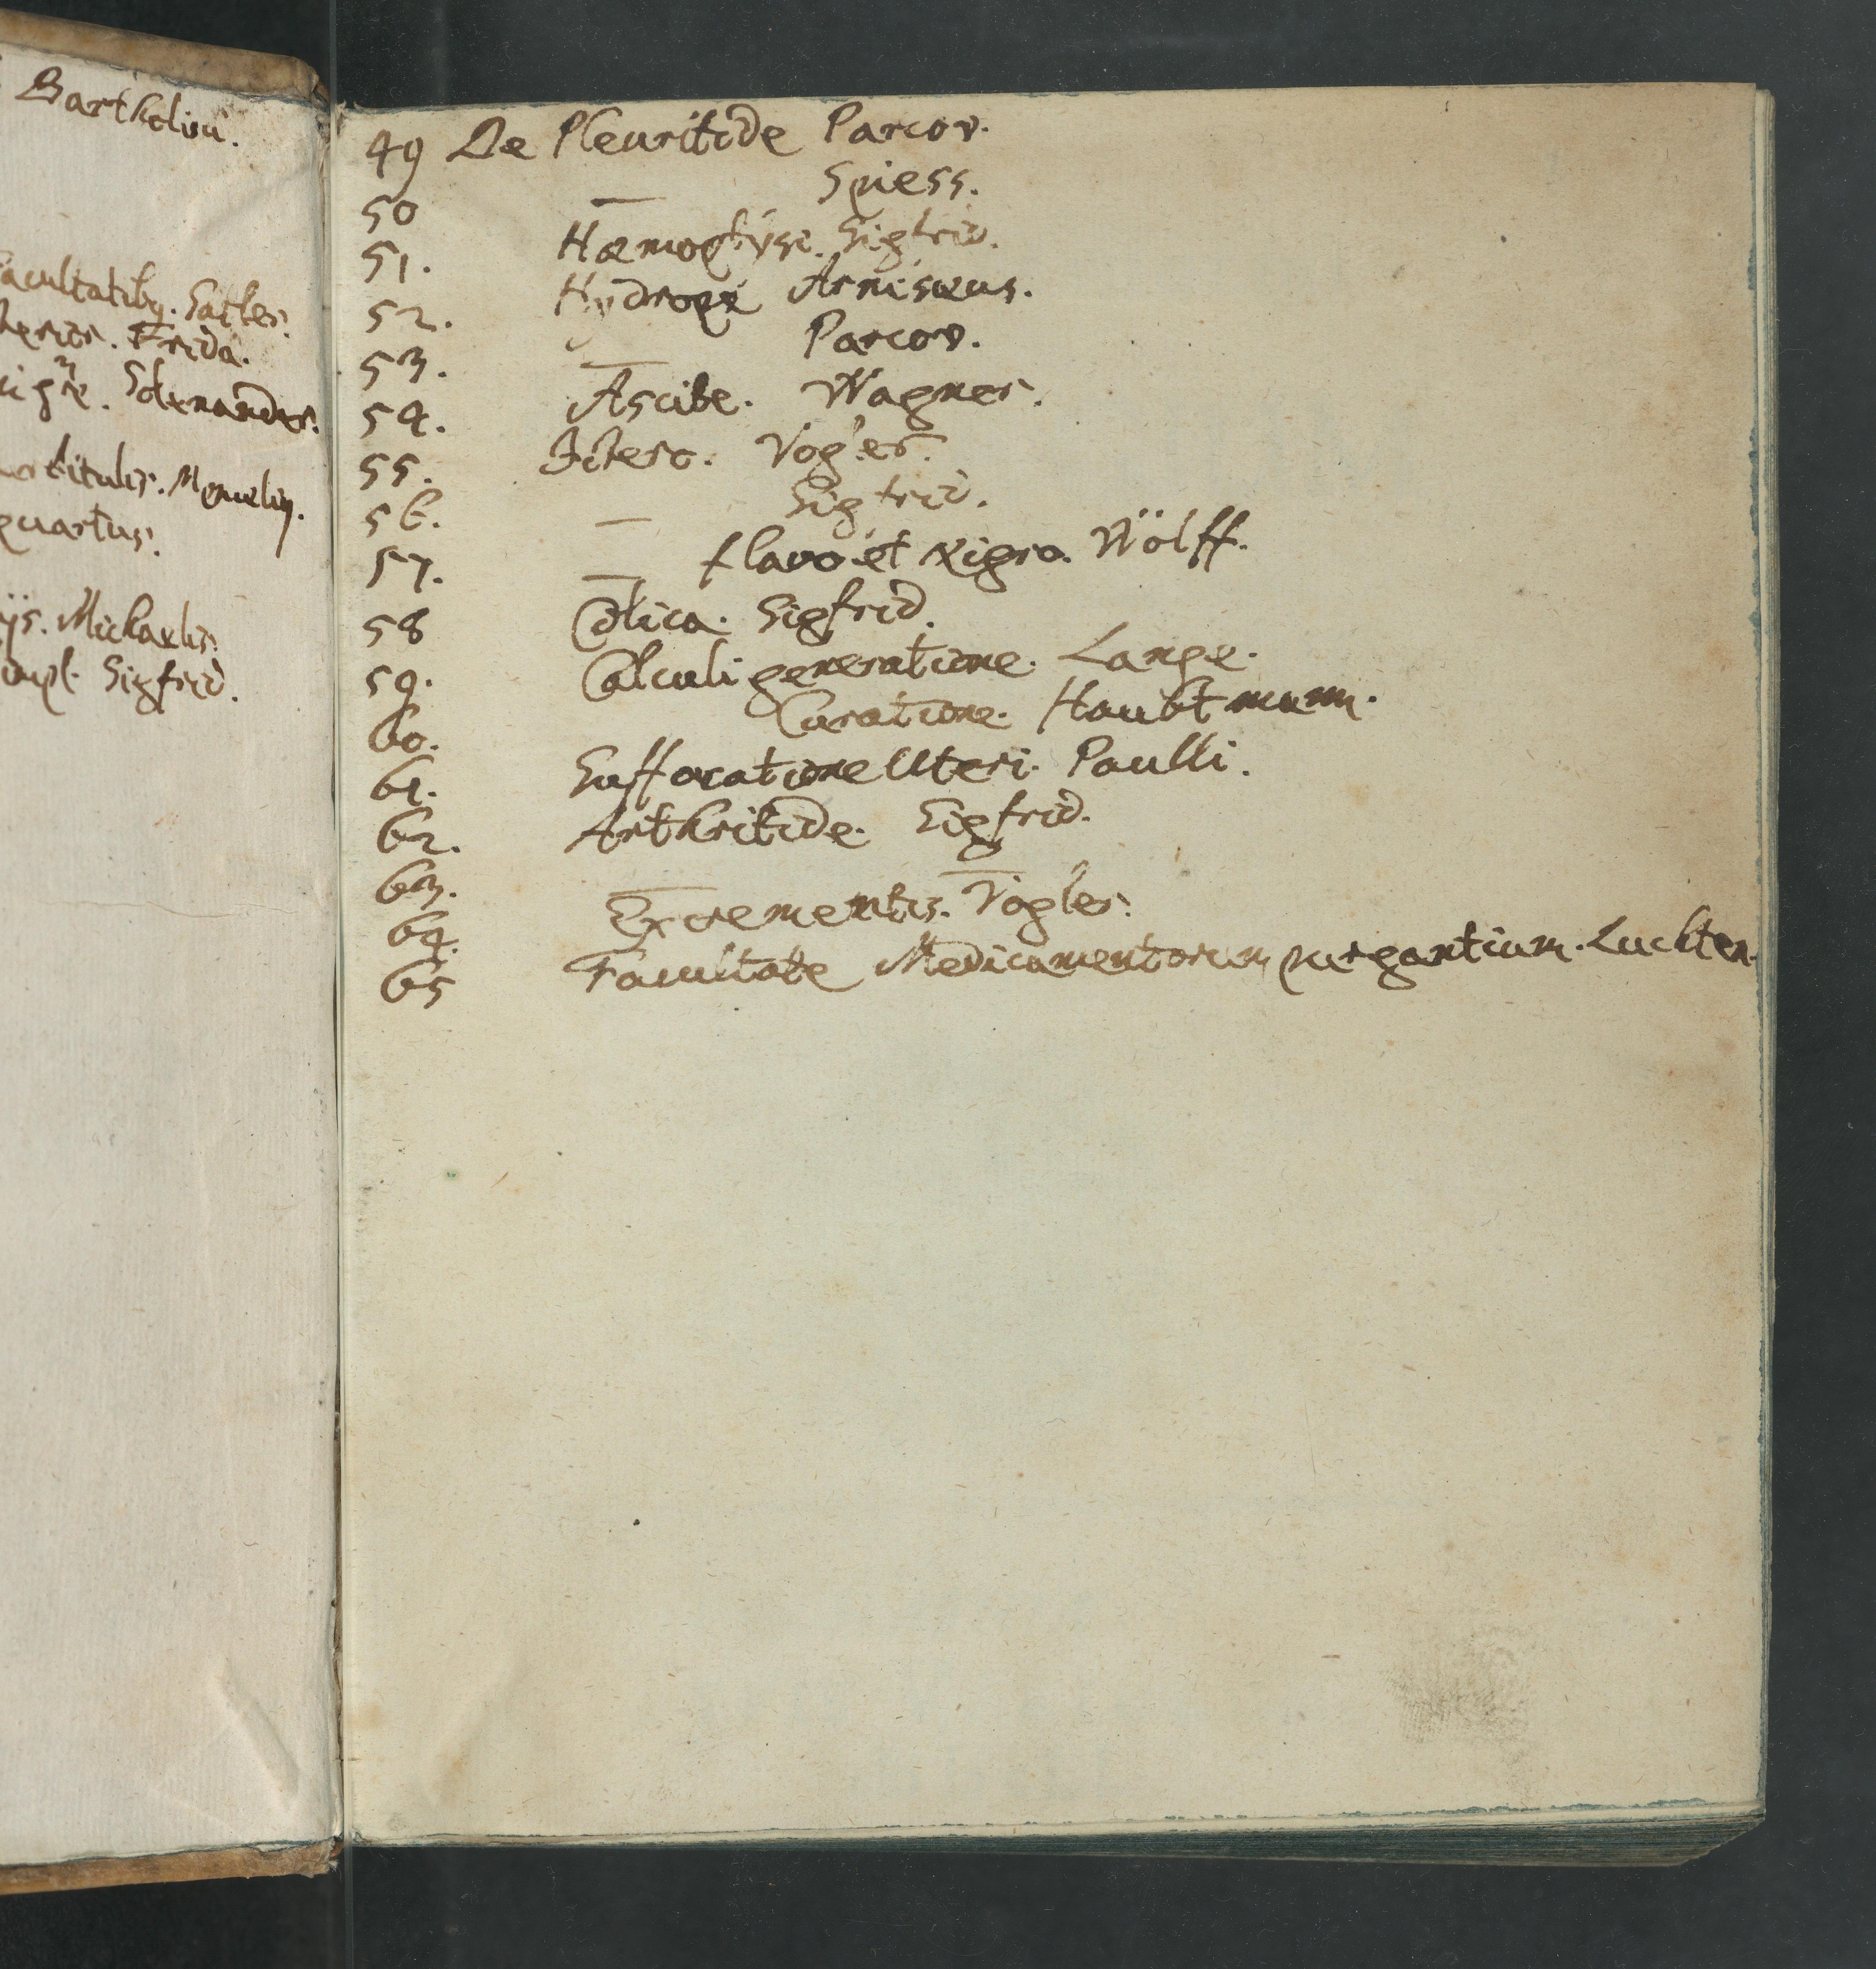 Bartholini.
Facultatibg. Satler.
Frida.
Schenander.
titulis. Menelig.
quartus.
ijs. Michaelis.
Sigfrid.
49 De Pleuritide Parcov.
50 — Spiess.
51. Hæmoptysi. Sigfrid.
52. Hydrope Arnisæus.
53. — Parcov.
54. Ascite. Wagner.
55. Ictero. Vogler.
56. — Sigfrid.
57. — flavo et Nigro. Wölff.
58 Colica. Sigfrid.
59. Calculi generatione. Lange.
60. Curatione. Haubtmann.
61. Suffocatione Uteri. Paulli.
62. Arthritide. Sigfrid.
63. — —
64. Excrementis. Vogler.
65 Facultate Medicamentorum purgantium. Luchten.